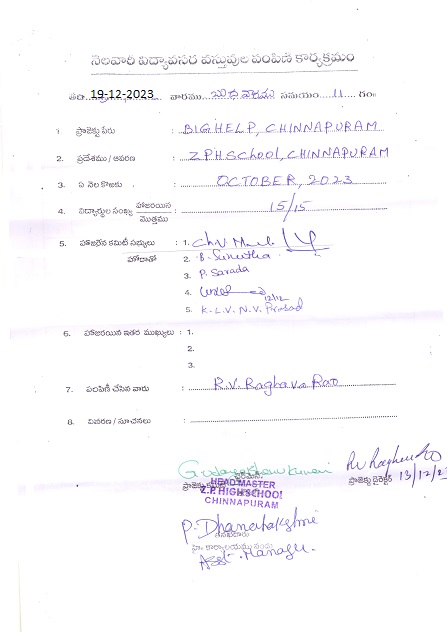 నెలవారి విద్యావసర వస్తువుల పంపిణి కార్యక్రమం
తేది 19-12-2023 వారము బుధవారము సమయం 11 గం॥
1. ప్రాజెక్టు పేరు : BIGHELP, CHINNAPURAM
2. ప్రదేశము / ఆవరణ : ZPHSchool, CHINNAPURAM
3. ఏ నెల కొరకు : OCTOBER, 2023
4. విద్యార్థుల సంఖ్య హాజరయిన / మొత్తము : 15/15
5. హాజరైన కమిటీ సభ్యులు : 1.
హోదాతో 2. B. Sunitha
3. P. Sarada
4. 12/12
5. K.L.V.N.V. Prasad
6. హాజరయిన ఇతర ముఖ్యులు : 1.
2.
3.
7. పంపిణీ చేసిన వారు : R.V. Raghava Rao
8. వివరణ / సూచనలు :
ప్రాజెక్టు డైరెక్టర్ 13/12/23
HEAD MASTER
Z.P. HIGH SCHOOL
CHINNAPURAM
P. Dhanalakshmi
Asst. Manager.